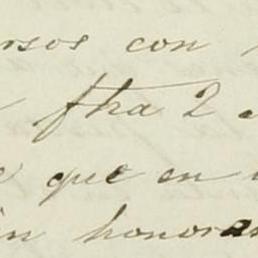 rsos con
fha 2
que en
ín honora